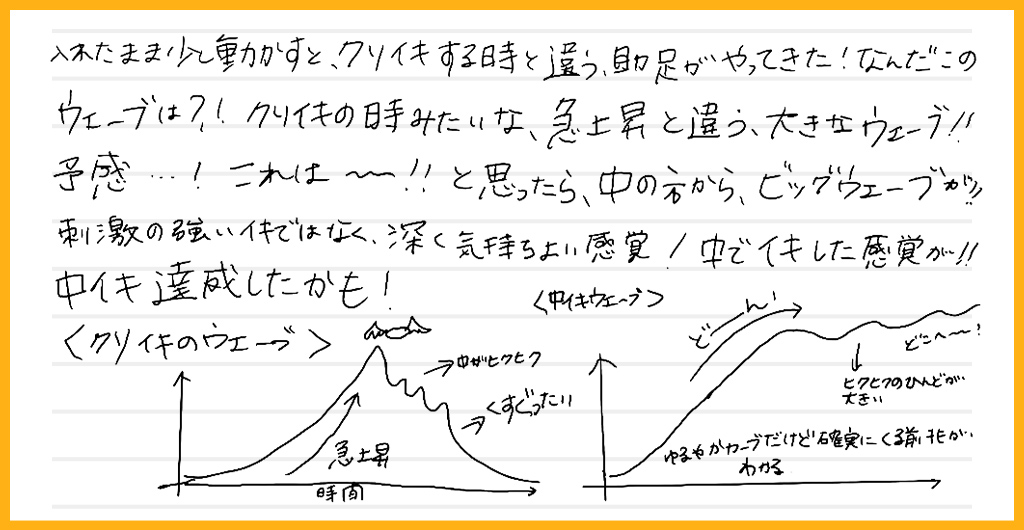 入れたまま少し動かすと、クリイキする時と違う、助走がやってきた！なんだこの
ウェーブは？！クリイキの時みたいな、急上昇と違う、大きなウェーブ!!
予感…！これは〜〜!!と思ったら、中の方から、ビッグウェーブが!!
刺激の強いイキではなく、深く気持ちよい感覚！中でイキした感覚が!!
中イキ達成したかも！
〈クリイキのウェーブ〉
中がヒクヒク
くすぐったい
急上昇
時間
〈中イキウェーブ〉
ど――ん！
どこへ〜〜！
ヒクヒクのひんどが
大きい
ゆるやかカーブだけど確実にくる前兆が
わかる